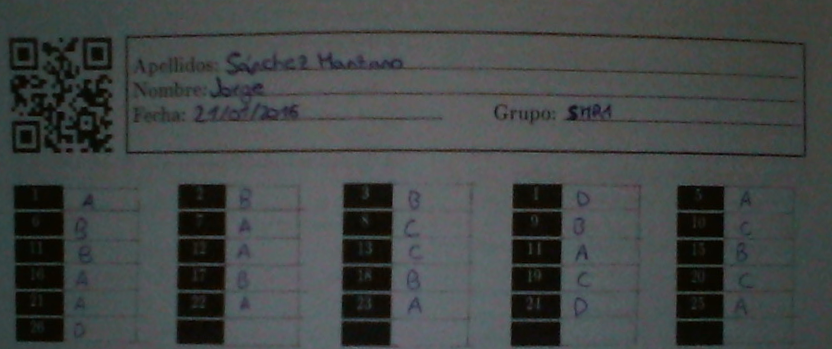 Apellidos: Sánchez Manzano
Nombre: Jorge
Fecha: 21/01/2016 Grupo: SMR1
1 A 2 B 3 B 4 D 5 A
6 B 7 A 8 C 9 B 10 C
11 B 12 A 13 C 14 A 15 B
16 A 17 B 18 B 19 C 20 C
21 A 22 A 23 A 24 D 25 A
26 D